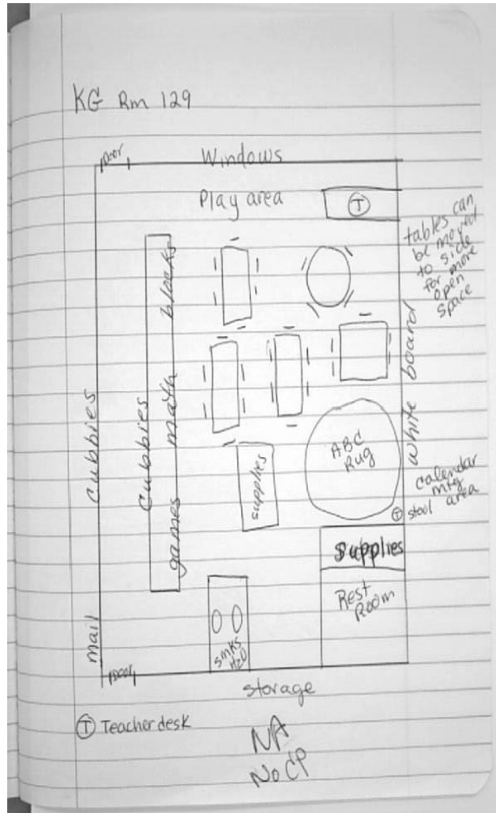 KG Rm 129
Door
Windows
Play area
T
tables can
be moved
to side
for more
open
space
Cubbies
Cubbies
games math blocks
white board
ABC
Rug
supplies
calendar
mtg
T stool area
supplies
Rest
Room
mail
sinks
H2O
Door
storage
T Teacher desk
NA
No CP